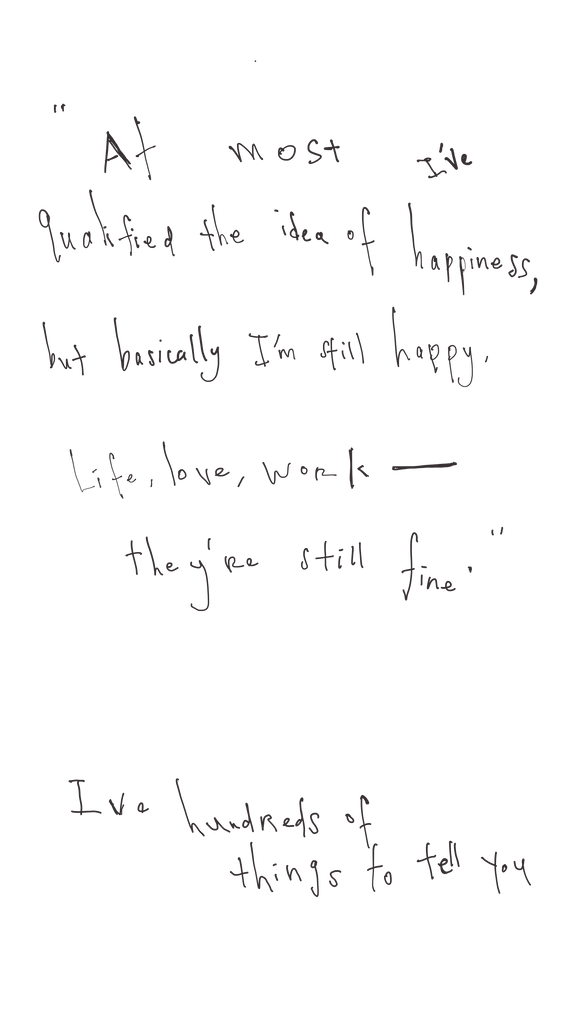 "At most I've
qualified the idea of happiness,
but basically I'm still happy.
Life, love, work —
they're still fine."
Ive hundreds of
things to tell you